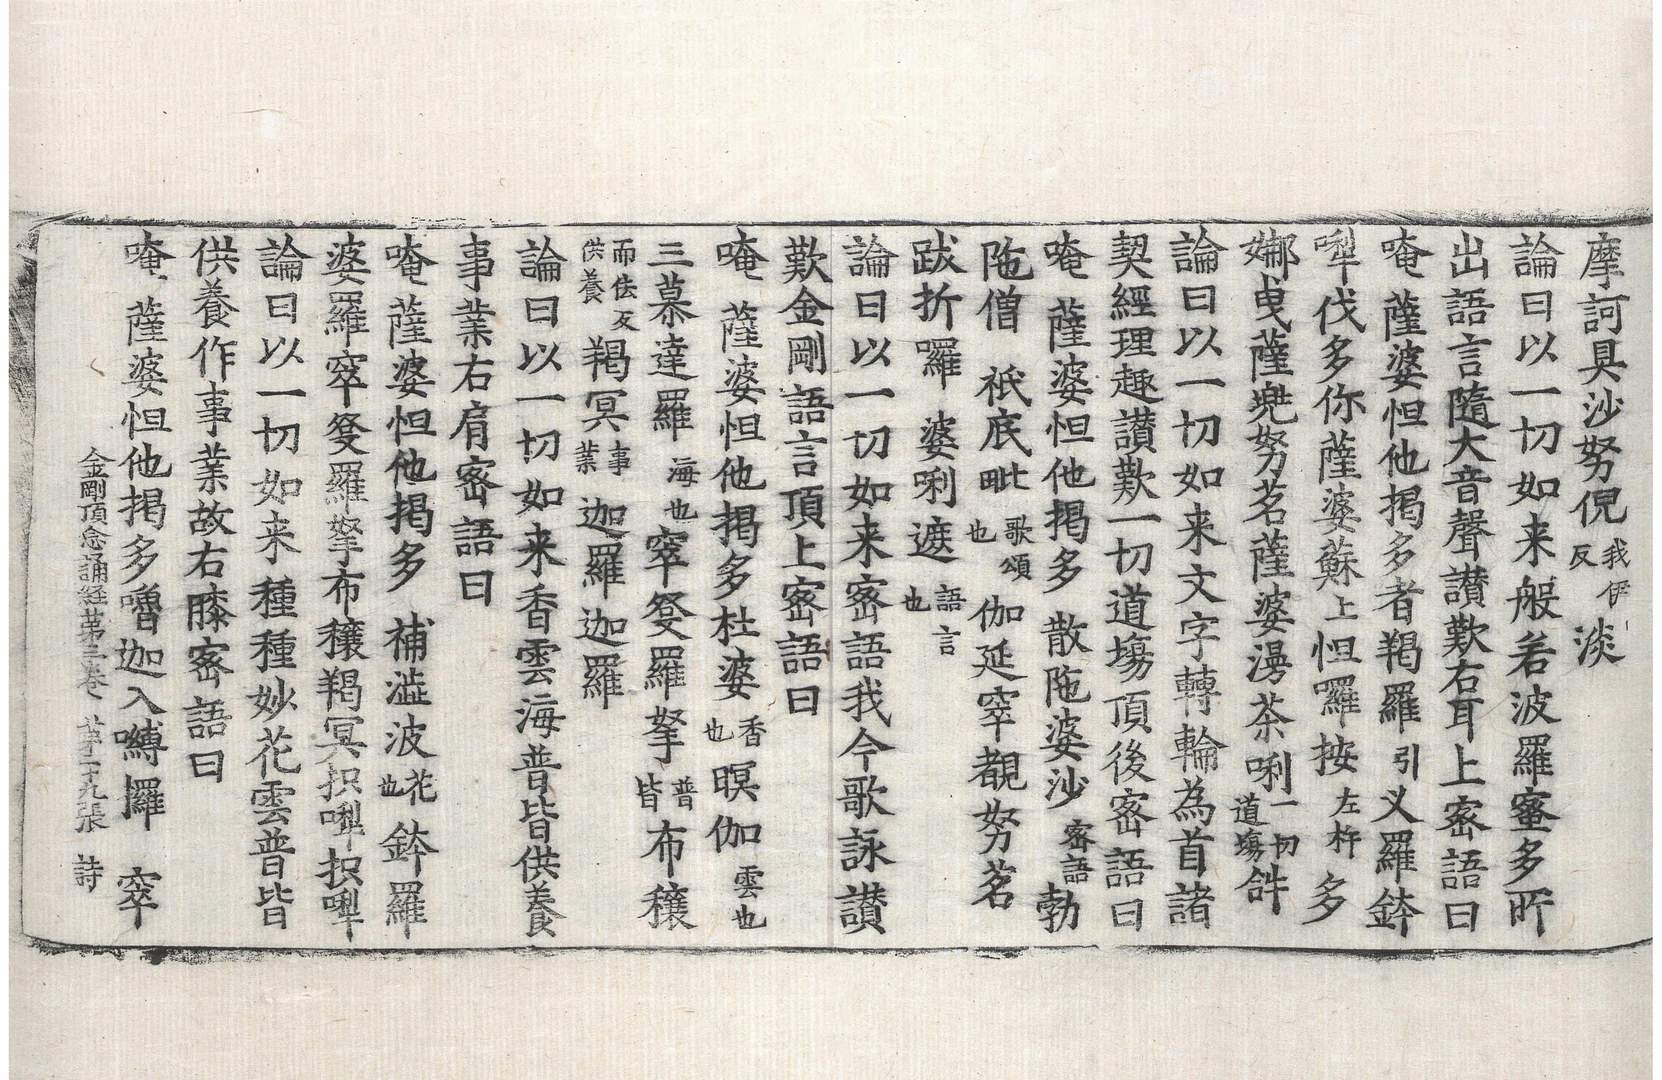 摩訶具沙努倪我伊反淡
論曰以一切如来般若波羅蜜多所
出語言隨大音聲讃歎右耳上密語曰
唵薩婆怛他揭多者羯羅引义羅鉢
㗚伐多你薩婆蘇上怛羅按左杵多
娜曳薩兠努茗薩婆漫茶唎一切道場
論曰以一切如来文字轉輪為首諸
契經理趣讃歎一切道場頂後密語曰
唵薩婆怛他揭多散陁婆沙密語勃
陁僧祇底毗歌頌也伽延窣覩努茗
跋折囉婆唎遮語言也
論曰以一切如来密語我今歌詠讃
歎金剛語言頂上密語曰
唵薩婆怛他揭多杜婆香也暝伽雲也
三慕達羅海也窣發羅拏普皆布穰
而佉反供養羯冥事業迦羅迦羅
論曰以一切如来香雲海普皆供養
事業右肩密語曰
唵薩婆怛他揭多補澁波花也鉢羅
婆羅窣發羅拏布穰羯冥抧㗚抧㗚
論曰以一切如来種種妙花雲普皆
供養作事業故右膝密語曰
唵薩婆怛他揭多嚕迦入嚩攞窣
金剛頂念誦經第三卷 第二十九張 詩